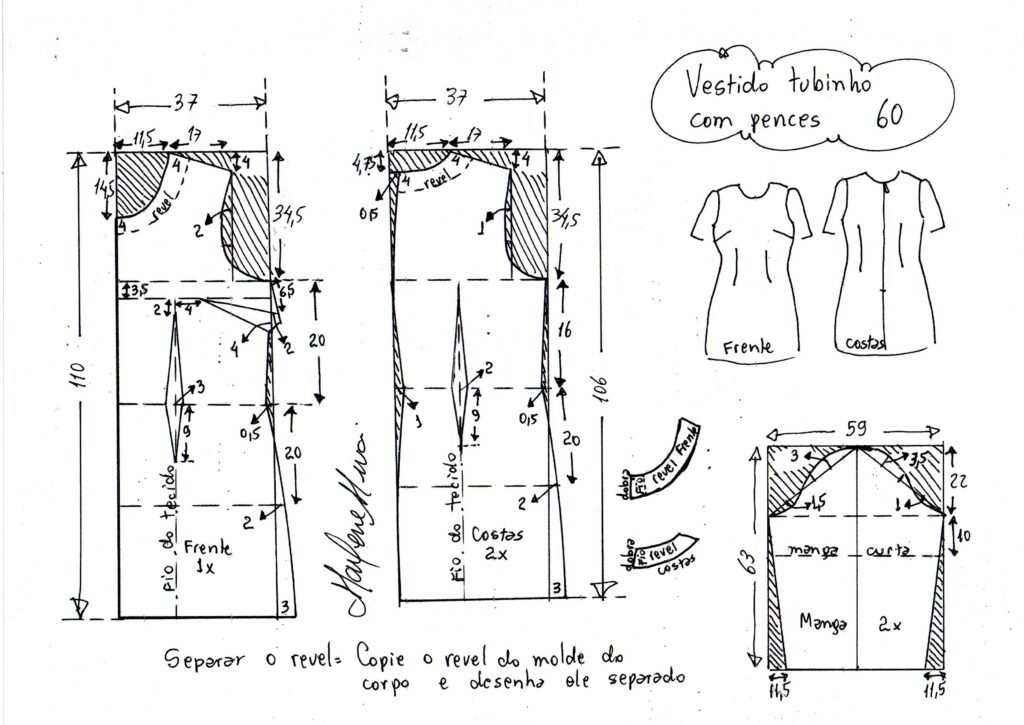 Vestido tubinho
com pences 60
37
11,5 17
4
4
14,5
revel
4
2
34,5
3,5
6,5
2 4
4
2
20
110
3
9
0,5
20
2
Fio do tecido
Frente
1x
3
37
11,5 17
4,75
4
4
4
revel
0,5
1
34,5
16
2
9
1
0,5
20
106
2
Fio do tecido
Costas
2x
3
Marlene Mukai
Frente
costas
dobra
Fio
revel Frente
dobra
Fio
revel
costas
59
3
3,5
1,5
1
22
10
63
manga curta
Manga 2x
11,5
11,5
Separar o revel= Copie o revel do molde do
corpo e desenha ele separado